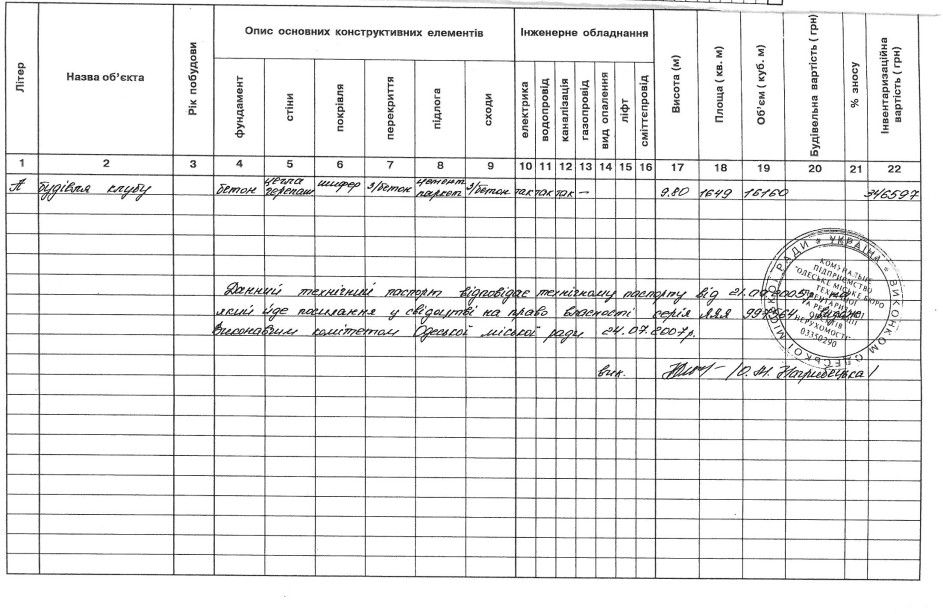 Опис основних конструктивних елементів Інженерне обладнання
Літер Назва об'єкта Рік побудови фундамент стіни покрівля перекриття підлога сходи електрика водопровід каналізація газопровід вид опалення ліфт сміттєпровід Висота (м) Площа ( кв. м) Об'єм ( куб. м) Будівельна вартість ( грн) % зносу Інвентаризаційна вартість ( грн)
1 2 3 4 5 6 7 8 9 10 11 12 13 14 15 16 17 18 19 20 21 22
А будівля клубу бетон цегла черепаш шифер з/бетон цемент паркет з/бетон так так так — 9.80 1649 16160 346597
Данний технічний паспорт відповідає технічному паспорту від
який йде посилання у свідоцтві на право власності серія ЯЯЯ
Виконавчим комітетом Одеської міської ради 24.07.2007р.
вик. /О.М.
УКРАЇНА * ВИКОНКОМ ОДЕСЬКОЇ МІСЬКОЇ РАДИ *
КОМУНАЛЬНЕ
ПІДПРИЄМСТВО
"ОДЕСЬКЕ МІСЬКЕ БЮРО
ТЕХНІЧНОЇ
ІНВЕНТАРИЗАЦІЇ
ТА РЕЄСТРАЦІЇ
ОБ'ЄКТІВ
НЕРУХОМОСТІ"
03350290